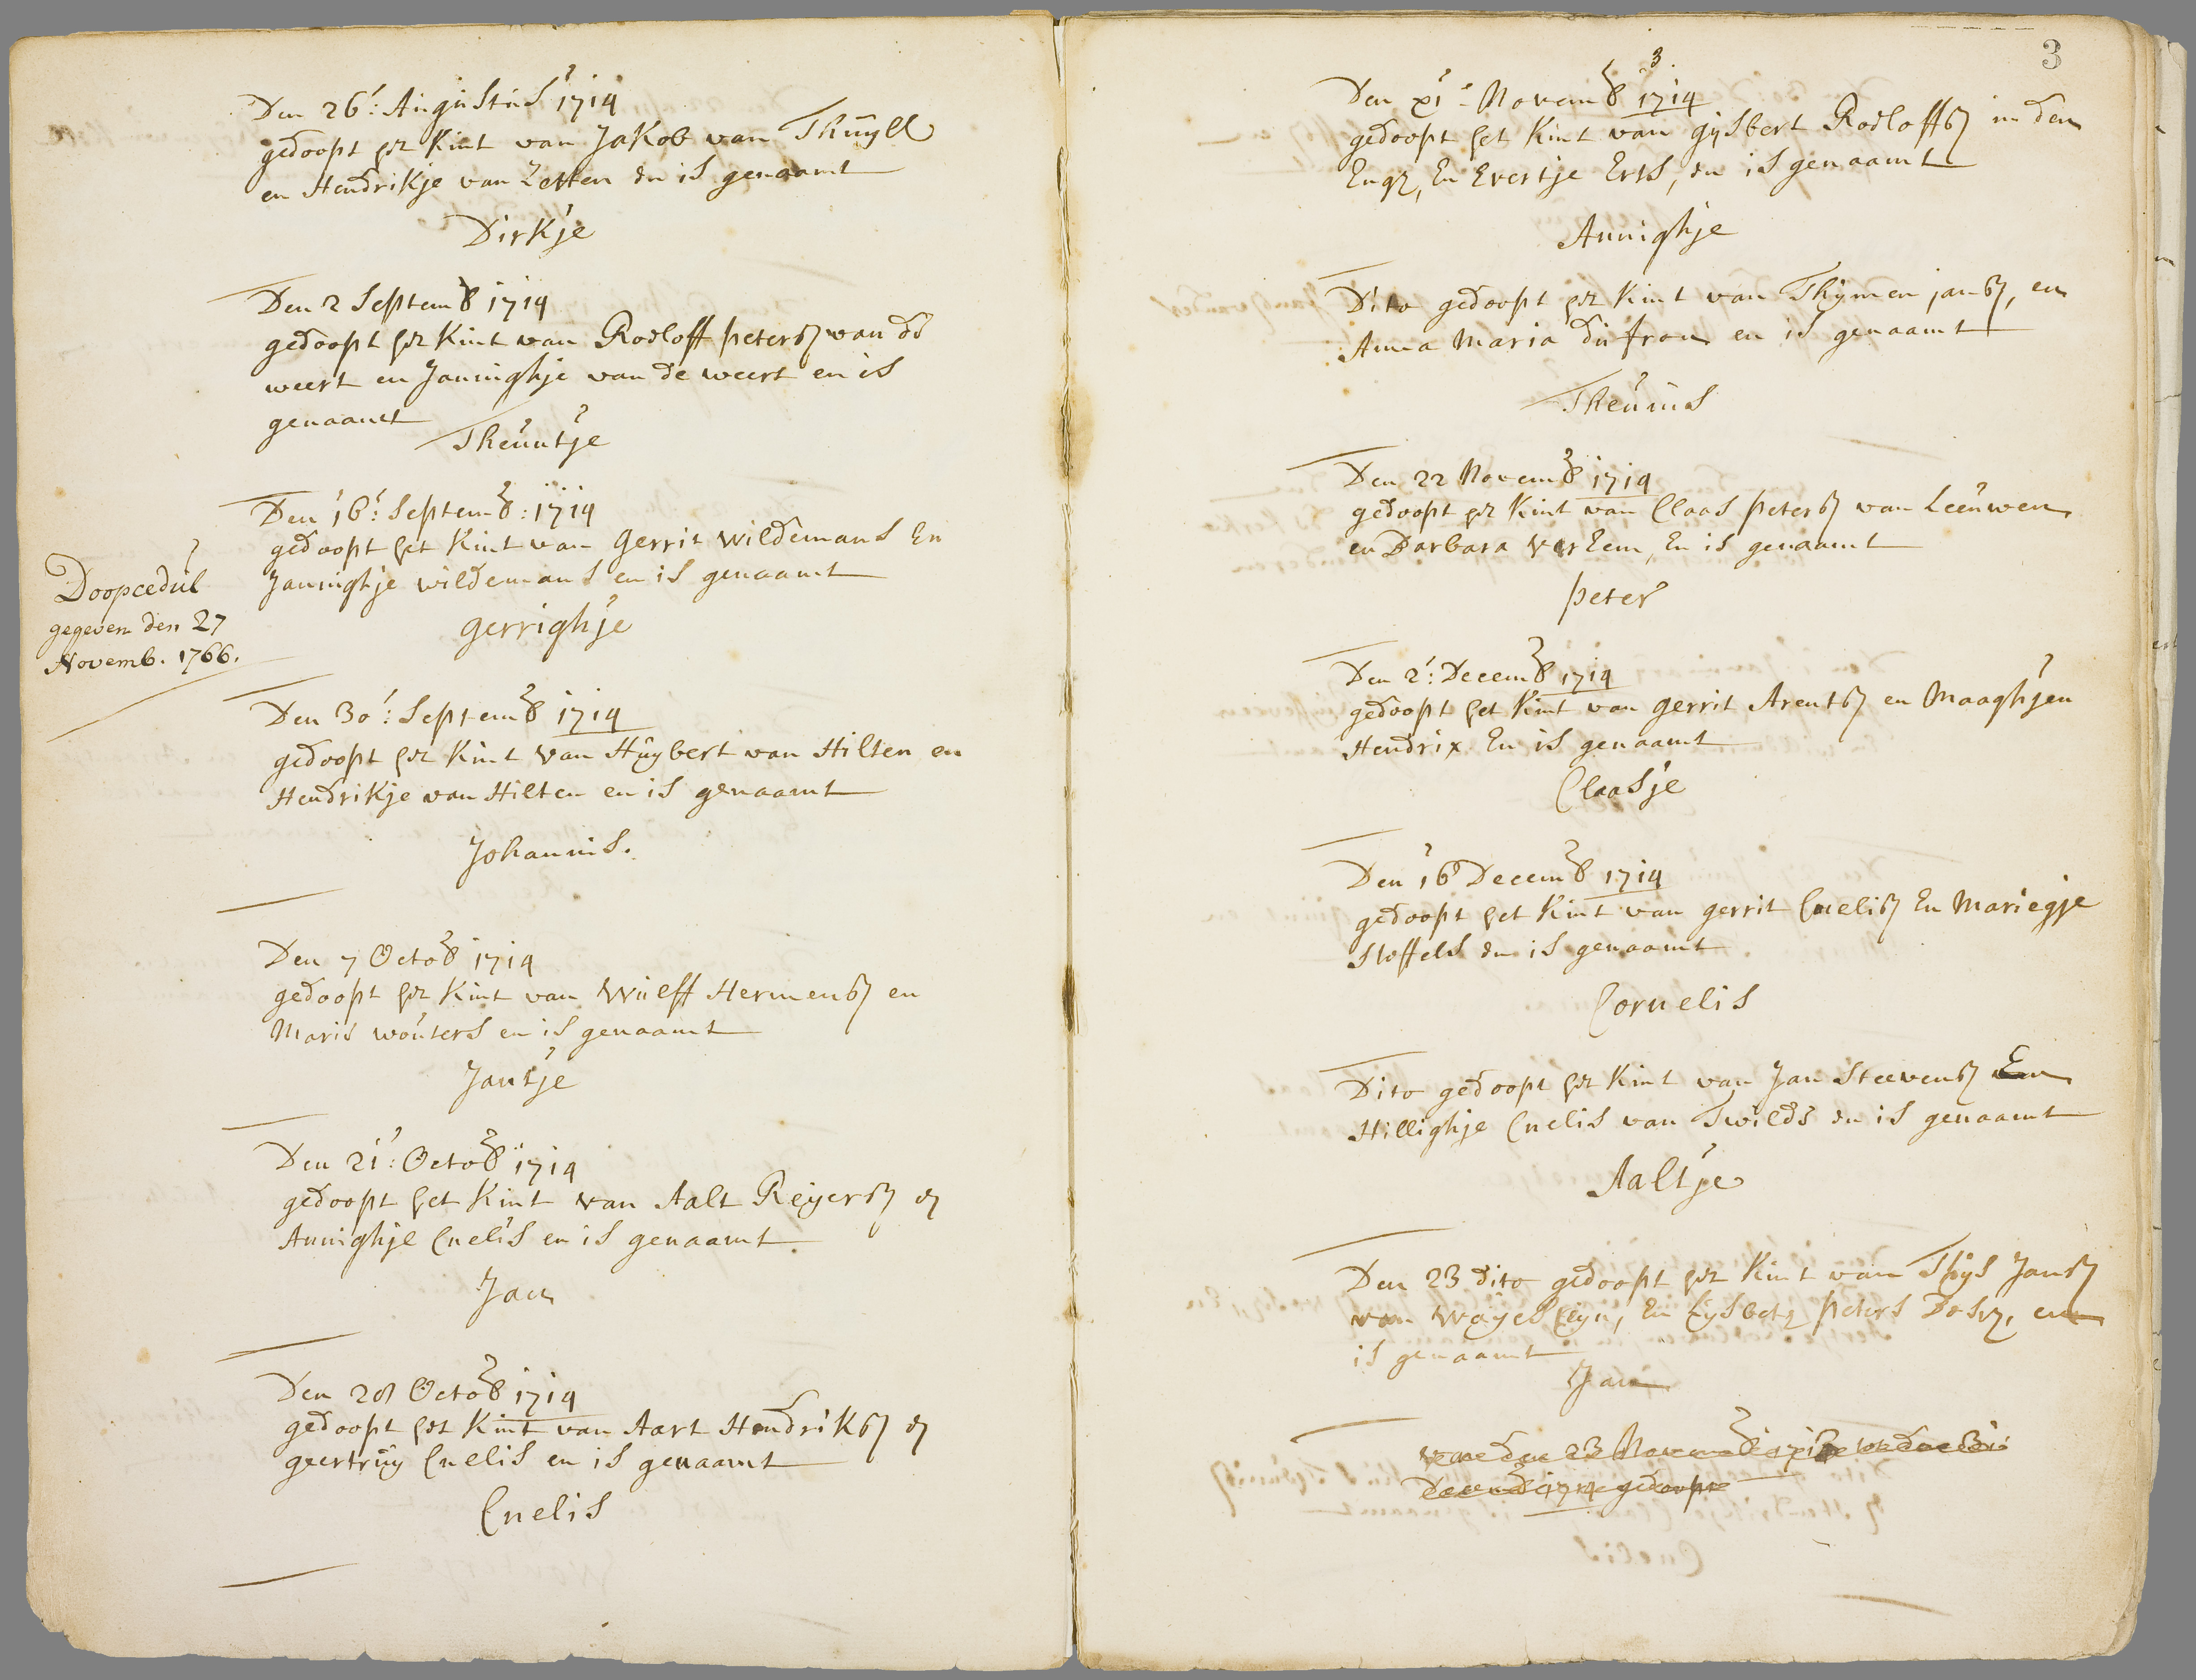 Den 26: Augustus 1714
gedoopt het Kint van Jakob van Thuyll
en Hendrikje van Zetten en is genaamt
Dirkje
Den 2 Septemb 1714
gedoopt het Kint van Roeloff petersz van de
weert en Janninghje van de weert en is
genaamt
Theuntje
Den 16: Septemb: 1714
gedoopt het Kint van Gerrit Wildemans En
Janninghje wildemans en is genaamt
gerrighje
Doopcedul
gegeven den 27
Novemb. 1766.
Den 30: Septemb 1714
gedoopt het Kint van Huybert van Hilten en
Hendrikje van Hilten en is genaamt
Johannis.
Den 7 Octob 1714
gedoopt het Kint van Wulff Hermensz en
Maris wouters en is genaamt
Jantje
Den 21: Octob 1714
gedoopt het Kint van Aalt Reyersz en
Annighje Cnelis en is genaamt
Jan
Den 28 Octob 1714
gedoopt het Kint van Aart Hendriksz en
geertruy Cnelis en is genaamt
Cnelis
3
3.
Den XI: Novemb 1714
gedoopt het Kint van gysbert Roeloffsz in den
Engh, En Evertje Erts, en is genaamt
Annighje
Dito gedoopt het Kint van Thymen jansz, en
Anna Maria du fron en is genaamt
Theunis
Den 22 Novemb 1714
gedoopt het Kint van Claas petersz van Leeuwen
en Barbara verkem, En is genaamt
peter
Den 2: Decemb 1714
gedoopt het Kint van gerrit Arentsz en Maaghjen
Hendrix En is genaamt
Claasje
Den 16 Decemb 1714
gedoopt het Kint van gerrit Cnelisz En Mariegje
Stoffels en is genaamt
Cornelis
Dito gedoopt het Kint van Jan Steevensz En
Hillighje Cnelis van Twilde en is genaamt
Aaltje
Den 23 dito gedoopt het Kint van Thys Jansz
van Wayesteyn, En Lysbeth peters en
is genaamt
Jan
den 23 Novemb
Decemb 1714 gedoopt